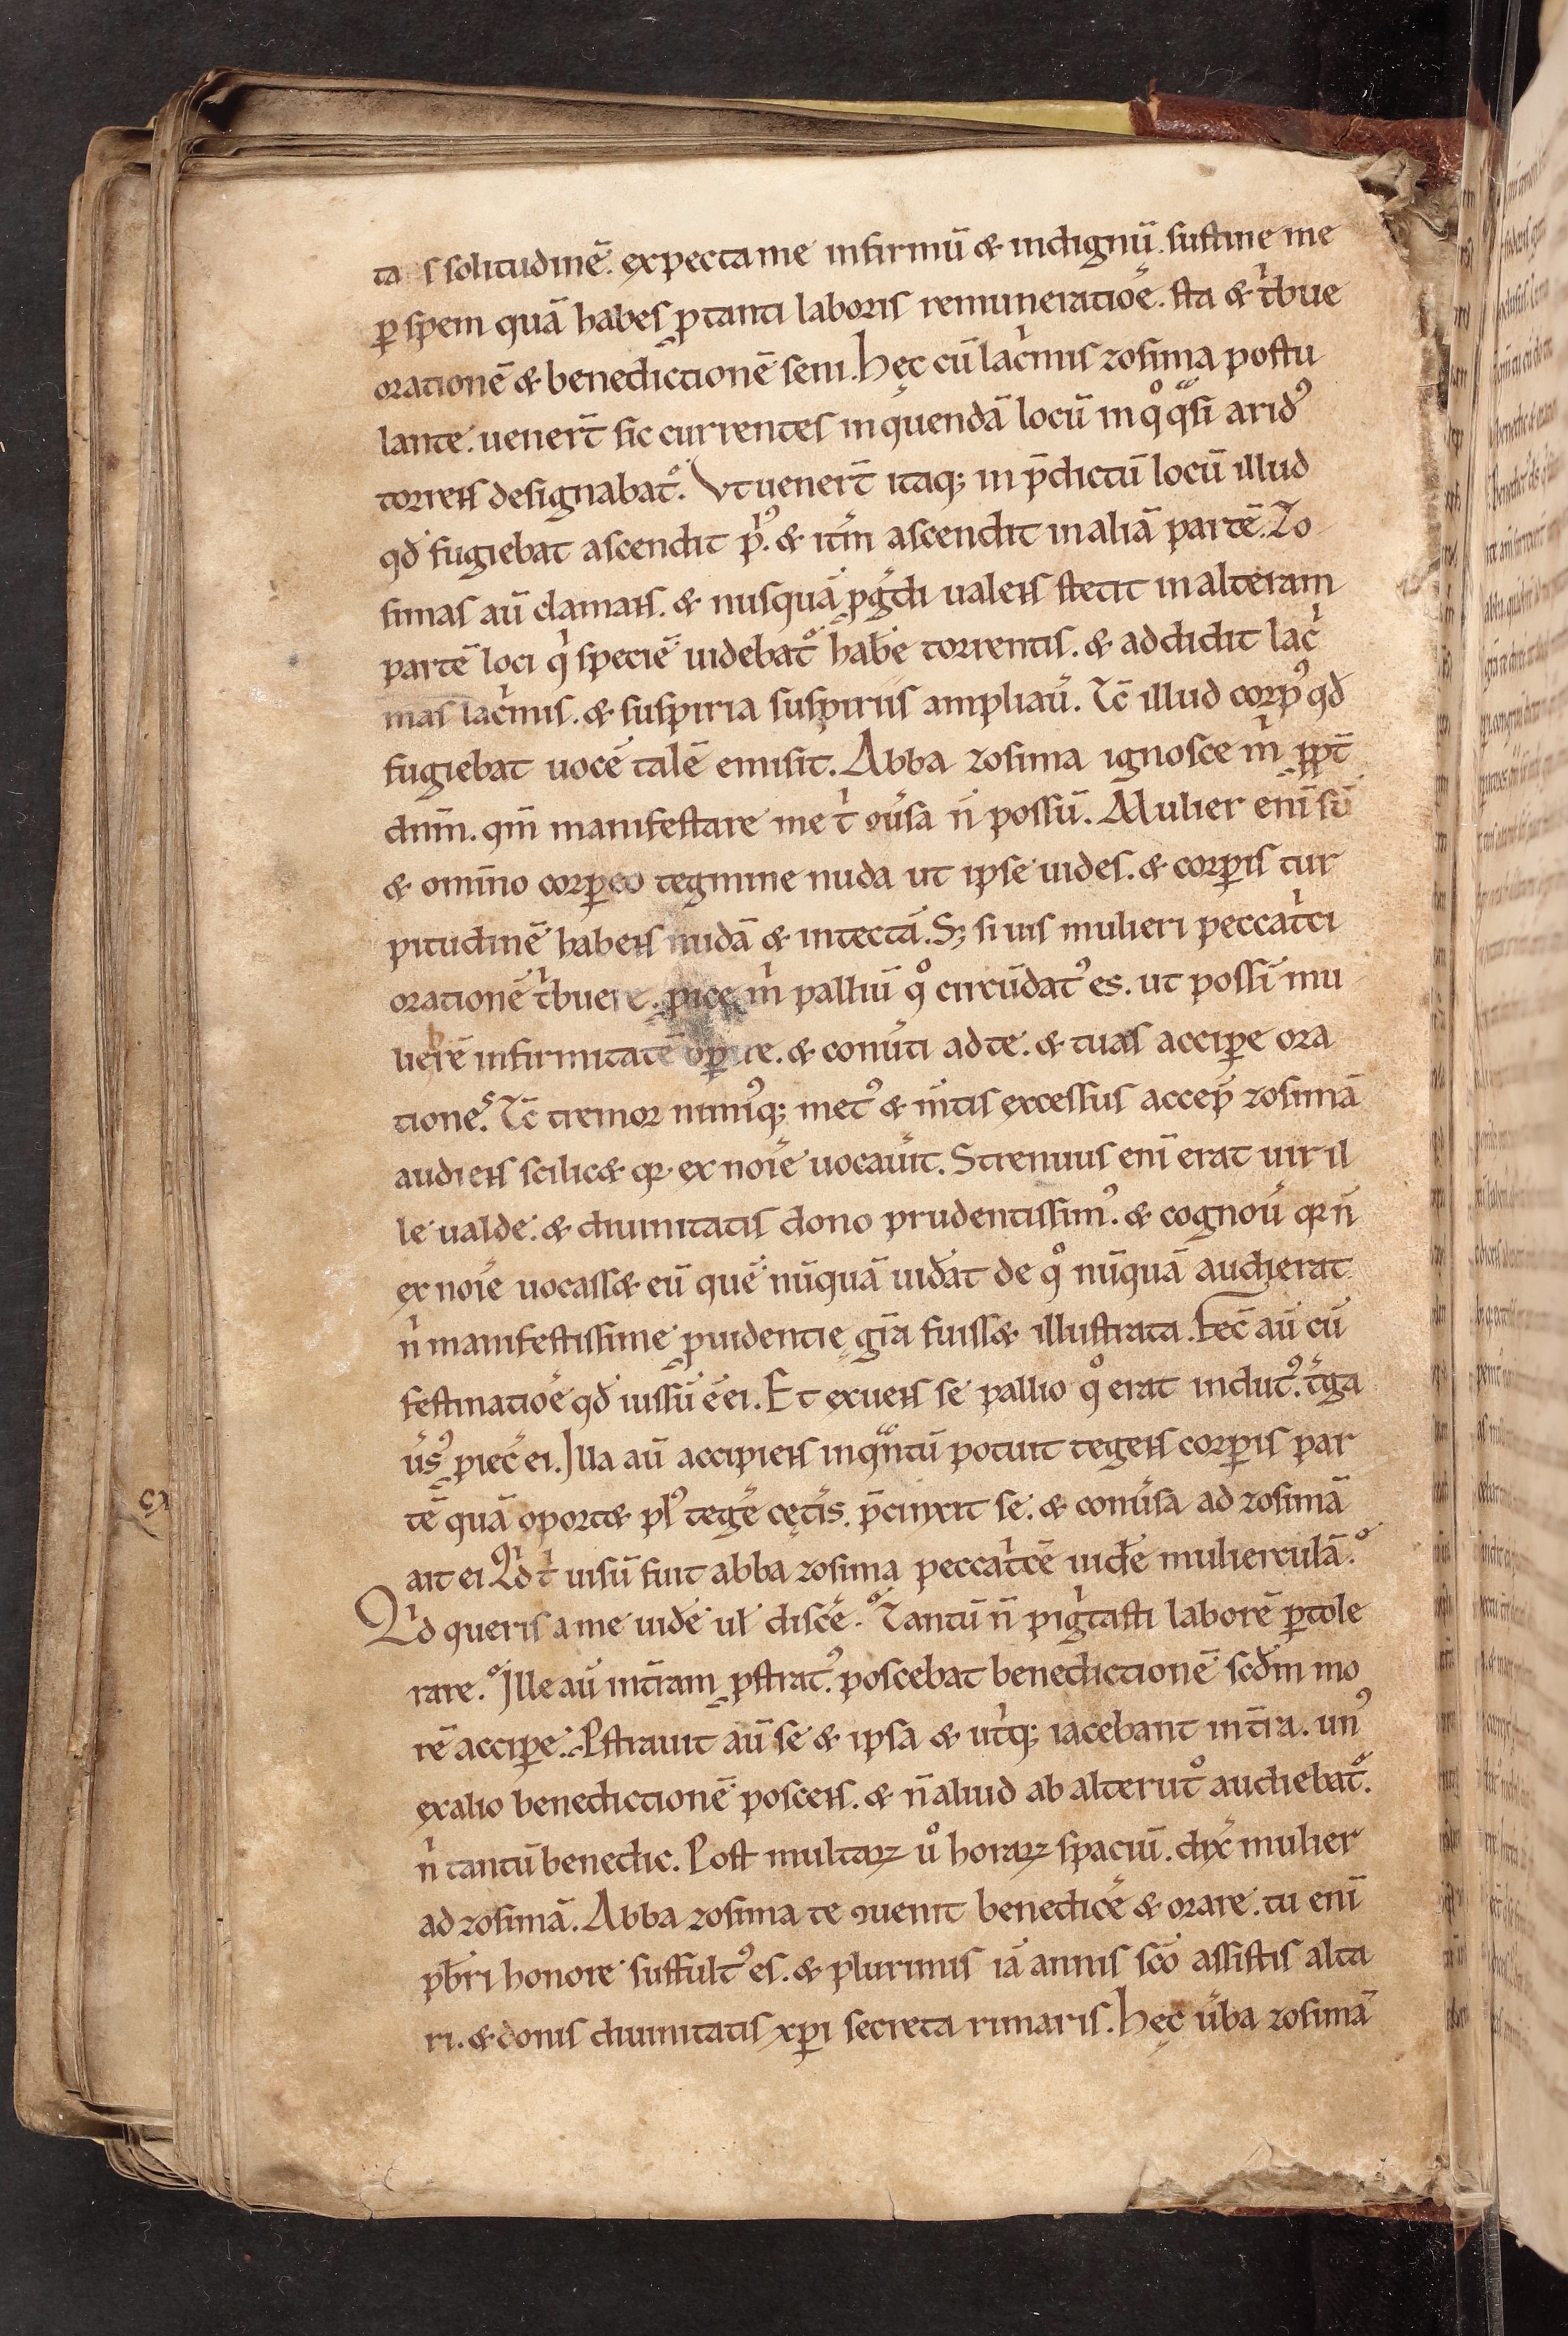 ta s solitudinē. expecta me infirmū & indignū. sustine me
ꝑ spem quā habes ꝓ tanti laboris remuneratiōe. sta & tͥbue
orationē & benedictionē seni. Hęc cū lacͥmis zosima postu
lante. uenert̄ sic currentes in quendā locū in qͦ qͣsi aridꝰ
torrens designabatᷣ. Vt uenert̄ itaq; in p̄dictū locū illud
qđ fugiebat ascendit pͥꝰ. & itm̄ ascendit in aliā partē. Zo
simas aū clamans. & nusquā ꝓgͤdi ualens stetit in alteram
partē loci qͥ speciē uidebatᷣ habē torrentis. & addidit lacͥ
mas lacͥmis. & suspiria suspiriis ampliau̅. Tc̄ illud corpꝰ qđ
fugiebat uocē talē emisit. Abba zosima ignosce m̄ ꝓpt̄
dnm̄. qm̄ manifestare me tͥ ꝯu̅sa n̄ possū. Mulier enī sū
& omīno corꝑeo tegmine nuda ut ipse uides. & corꝑis tur
pitudinē habens nudā & intectā. S; si uis mulieri peccatͥci
orationē tͥbuere. ꝓice m̄ palliū qͦ circūdatꝰ es. ut possī mu
liebrē infirmitatē oꝑire. & conu̅ti ad te. & tuas acciꝑe ora
tiones. Tc̄ tremor nimiꝰq; metꝰ & m̄tis excessus accep̄ zosimā
audiens scilic& qꝛ ex noīe uocauit. Strenuus enī erat uir il
le ualde. & diuinitatis dono prudentissimꝰ. & cognou̅ qꝛ n̄
ex noīe uocass& eū quē nūquā uiđat de qͦ nūquā audierat
nͥ manifestissime ꝓuidentię grā fuiss& illustrata. Fec̄ aū cū
festinatiōe qđ iussū ē ei. Et exuens se pallio qͦ erat indutꝰ. tͤga
u̅sꝰ ꝓiec̄ ei. Illa aū accipiens in qͣntū potuit tegens corꝑis par
tē quā oport& plꝰ tegē cęt̄is. p̄cinxit se. & conu̅sa ad zosimā
ait ei. Qͥd tͥ uisū fuit abba zosima peccatͥcē uiđe mulierculā.
Qͥd queris a me uiđe ul̄ discē. Tantū n̄ pigͥtasti laborē ꝑtole
rare. Ille aū in t̄ram ꝓstratꝰ. poscebat benedictionē scđm mo
rē acciꝑe. Pstrauit aū se & ipsa & ut̄q; iacebant in t̄ra. unꝰ
ex alio benedictionē poscens. & n̄ aliud ab alterutͦ audiebatᷣ.
nͥ tantū benedic. Post multaꝝ uͦ horaꝝ spaciū. dix̄ mulier
ad zosimā. Abba zosima te ꝯuenit benedicē & orare. tu enī
pb̄ri honore suffultꝰ es. & plurimis iā annis sc̄o assistis alta
ri. & donis diuinitatis xp̄i secreta rimaris. Hęc u̅ba zosimā